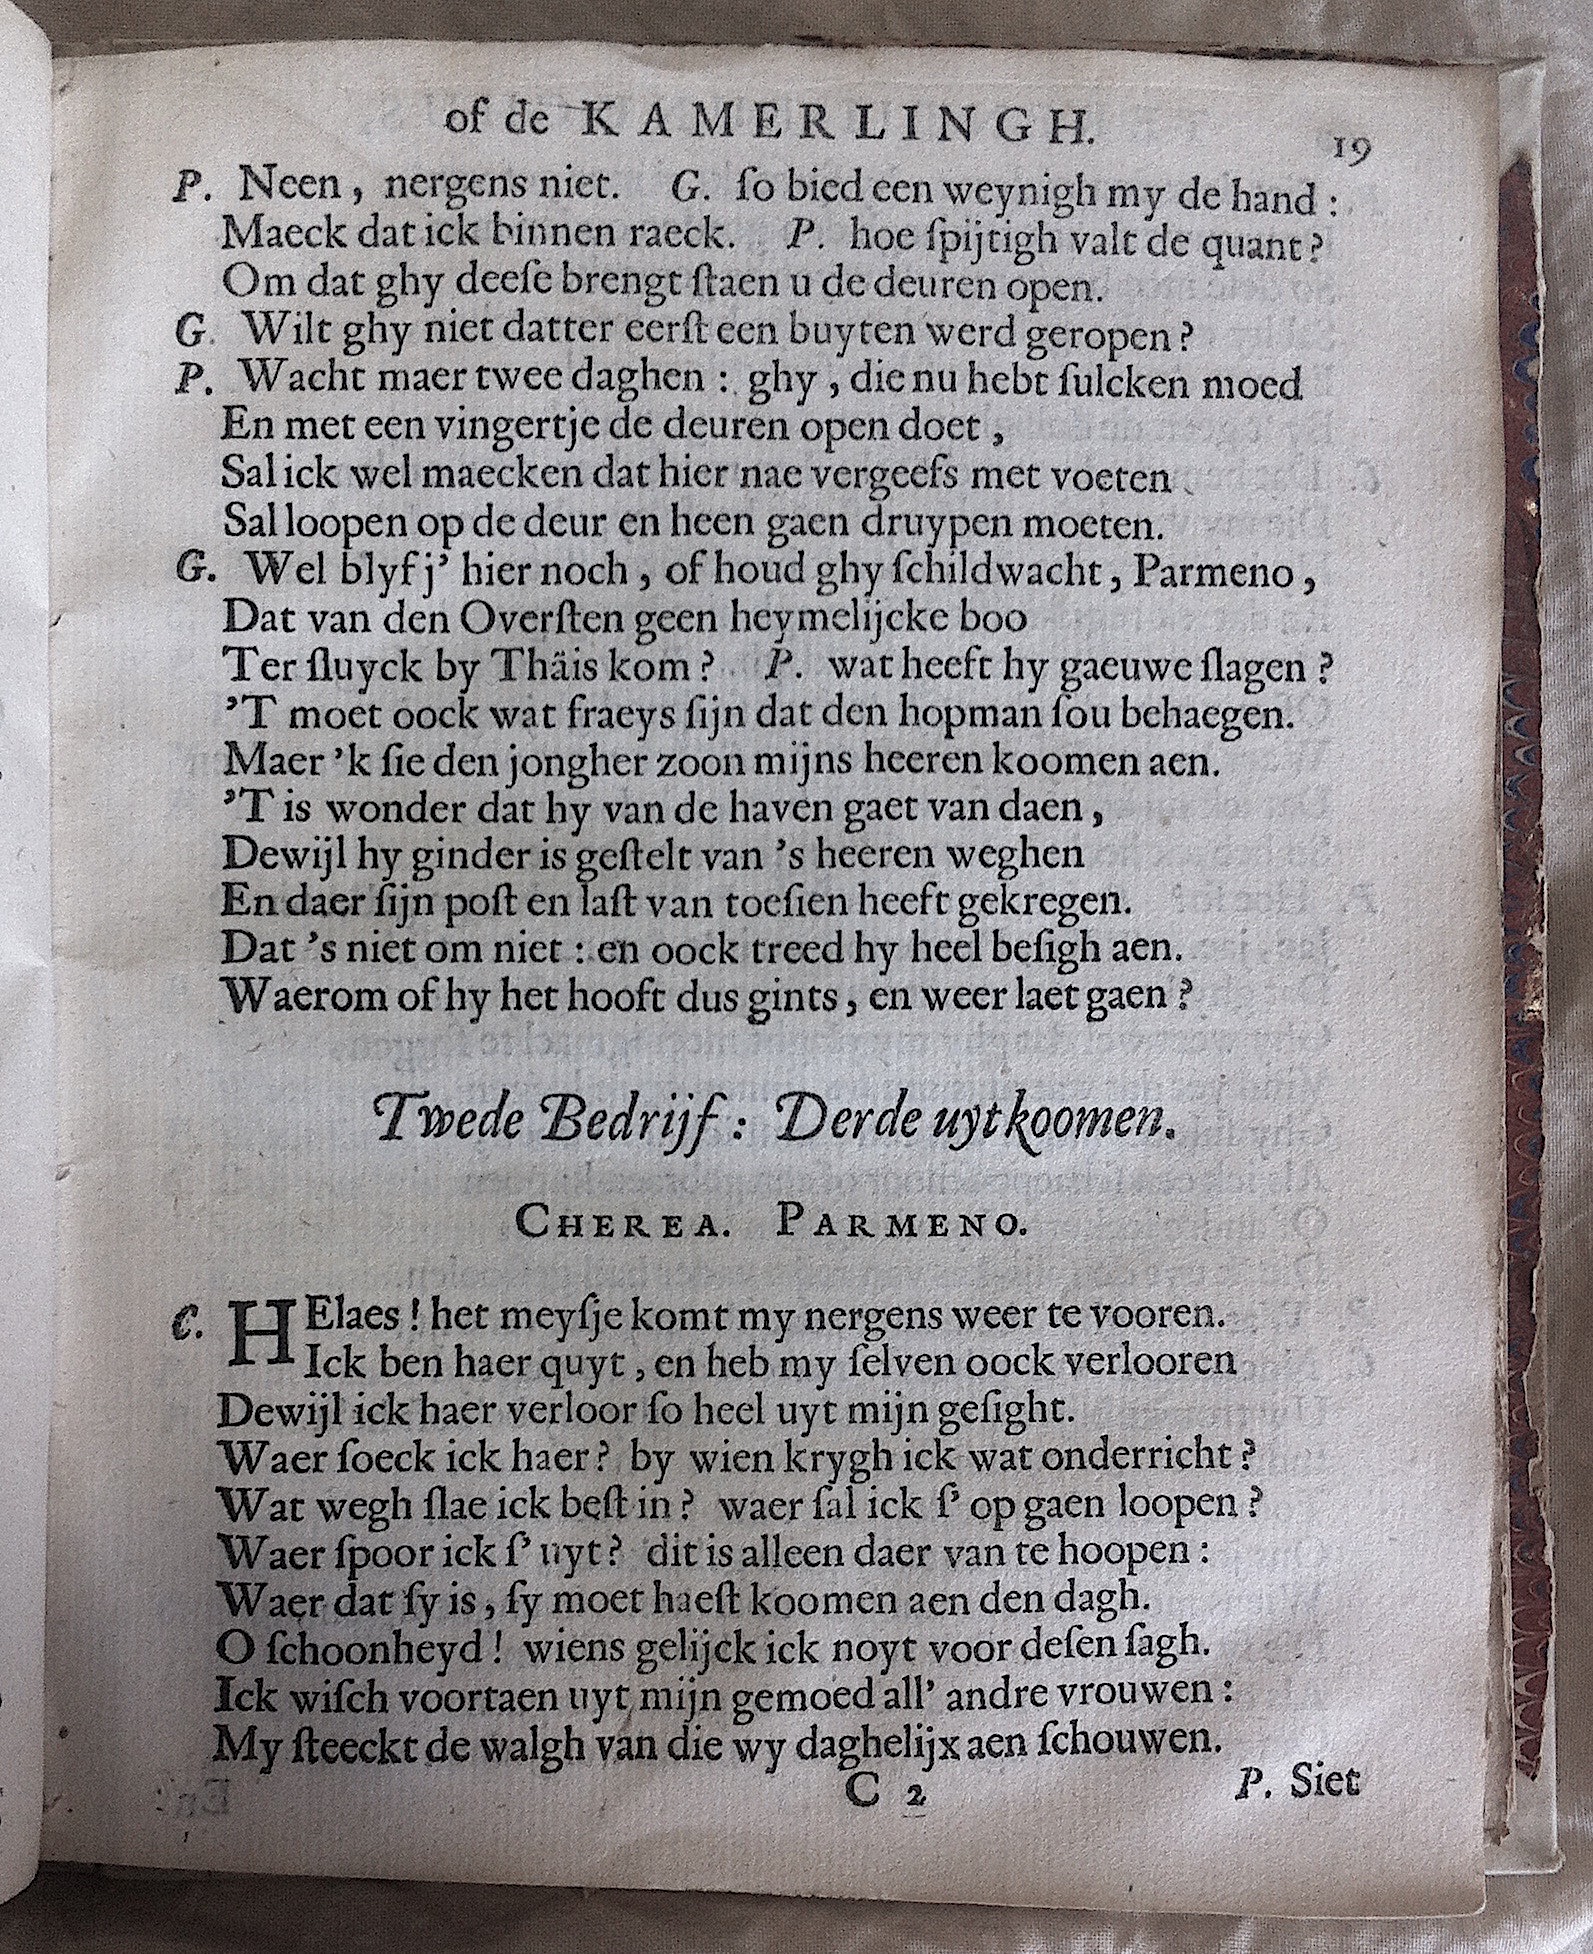 of de KAMERLINGH. 19
P. Neen, nergens niet. G. ſo bied een weynigh my de hand:
Maeck dat ick binnen raeck. P. hoe ſpijtigh valt de quant?
Om dat ghy deeſe brengt ſtaen u de deuren open.
G. Wilt ghy niet datter eerſt een buyten werd geropen?
P. Wacht maer twee daghen: ghy, die nu hebt ſulcken moed
En met een vingertje de deuren open doet,
Sal ick wel maecken dat hier nae vergeefs met voeten
Sal loopen op de deur en heen gaen druypen moeten.
G. Wel blyf j' hier noch, of houd ghy ſchildwacht, Parmeno,
Dat van den Overſten geen heymelijcke boo
Ter ſluyck by Thäis kom? P. wat heeft hy gaeuwe ſlagen?
'T moet oock wat fraeys ſijn dat den hopman ſou behaegen.
Maer 'k ſie den jongher zoon mijns heeren koomen aen.
'T is wonder dat hy van de haven gaet van daen,
Dewijl hy ginder is geſtelt van 's heeren weghen
En daer ſijn poſt en laſt van toeſien heeft gekregen.
Dat 's niet om niet: en oock treed hy heel beſigh aen.
Waerom of hy het hooft dus gints, en weer laet gaen?
Twede Bedrijf: Derde uytkoomen.
CHEREA. PARMENO.
C. HElaes! het meyſje komt my nergens weer te vooren.
Ick ben haer quyt, en heb my ſelven oock verlooren
Dewijl ick haer verloor ſo heel uyt mijn geſight.
Waer ſoeck ick haer? by wien krygh ick wat onderricht?
Wat wegh ſlae ick beſt in? waer ſal ick ſ' op gaen loopen?
Waer ſpoor ick ſ' uyt? dit is alleen daer van te hoopen:
Waer dat ſy is, ſy moet haeſt koomen aen den dagh.
O ſchoonheyd! wiens gelijck ick noyt voor deſen ſagh.
Ick wiſch voortaen uyt mijn gemoed all' andre vrouwen:
My ſteeckt de walgh van die wy daghelijx aen ſchouwen.
C 2 P. Siet